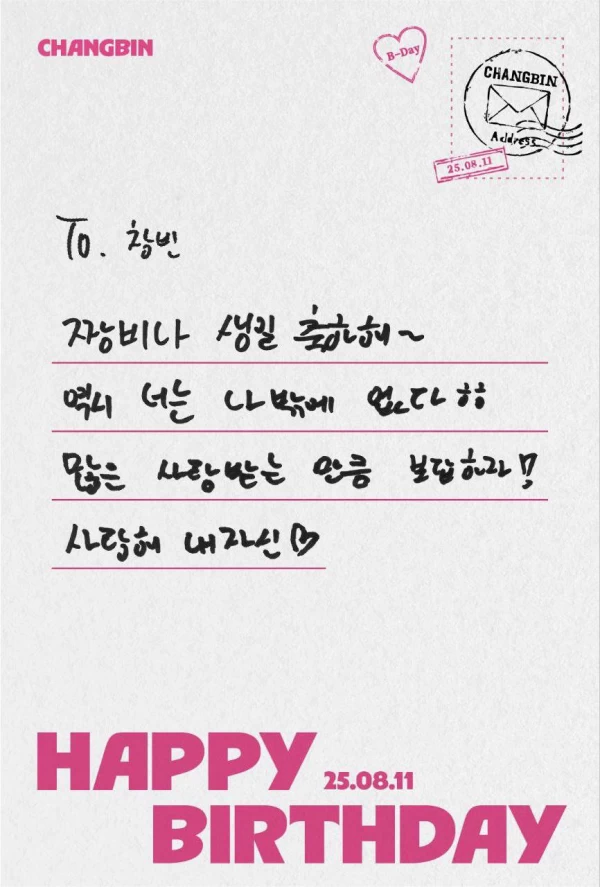 CHANGBIN
B-Day
CHANGBIN
Address
25.08.11
To. 창빈
자앙비나 생일 축하해~
역시 너는 나밖에 없다 ㅎㅎ
많은 사랑받는 만큼 보답하라!!
사랑해 내 자신♡
HAPPY
25.08.11
BIRTHDAY